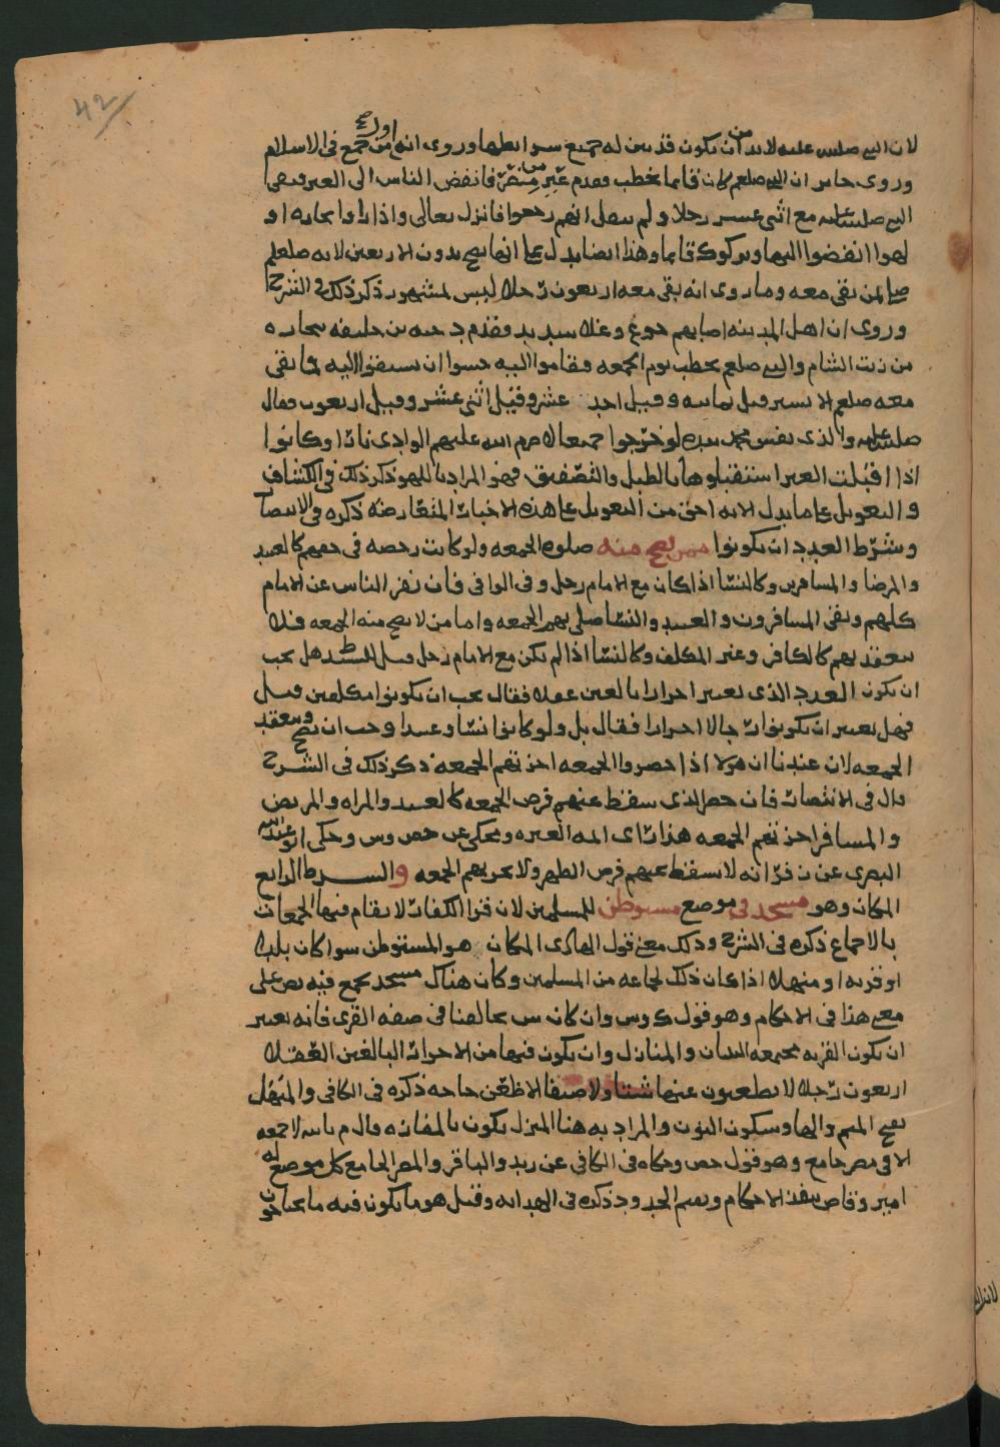 42
لان النبي صلى الله عليه لا بد من ان يكون قد بين له جميع شرايطها وروى انه اول من جمع في الاسلام
وروى جابر ان النبي صلعم كان قايما يخطب وقدم عير من فانفض الناس الى العير وبقى
النبي صلى الله عليه مع اثنى عشر رجلا ولم ينقل انهم رجعوا فانزل تعالى واذا راوا تجارة او
لهوا انفضوا اليها وتركوك قايما وهذا ايضا يدل على انها تصح بدون الاربعين لانه صلعم
صلى بمن بقى معه وما روى انه بقى معه اربعون رجلا ليس بمشهور ذكر ذلك في الشرح
وروى ان اهل المدينة اصابهم جوع وغلا شديد وقدم دحية بن خليفة بتجارة
من زيت الشام والنبي صلعم يخطب يوم الجمعة فقاموا اليه خشوا ان يسبقوا اليه فما بقى
معه صلعم الا يسير قيل ثمانية وقيل احد عشر وقيل اثنى عشر وقيل اربعون فقال
صلى الله عليه والذي نفس محمد بيده لو خرجوا جميعا لاضرم الله عليهم الوادي نارا وكانوا
اذا اقبلت العير استقبلوها بالطبل والتصفيق فهو المراد باللهو ذكر ذلك في الكشاف
والتعويل على ما يدل الاية احق من التعويل على هذه الاخبار المتعارضة ذكره في الانتصار
وشرط العدد ان يكونوا ممن تصح منه صلوة الجمعة ولو كانت رخصة في حقهم كالعبيد
والمرضا والمسافرين وكالنسا اذا كان مع الامام رجل وفي الوافي فان نفر الناس عن الامام
كلهم وبقى المسافرون والعبيد والنسا صلى بهم الجمعة واما من لا تصح منه الجمعة فلا
تنعقد بهم كالكافر وغير المكلف وكالنسا اذا لم يكن مع الامام رجل قيل هل يجب
ان يكون العدد الذي يعتبر احرارا بالغين عقلا فقال يجب ان يكونوا مكلفين قيل
فهل يعتبر ان يكونوا رجالا احرارا فقال بل ولو كانوا نسا وعبيدا وجب ان تصح وتنعقد
الجمعة لان عندنا ان هولا اذا حضروا الجمعة اجزتهم الجمعة ذكر ذلك في الشرح
قال في الانتصار فان حضر الذي سقط عنهم فرض الجمعة كالعبيد والمراة والمريض
والمسافر اجزتهم الجمعة هذا راى ايمة العترة ومحكى عن ح ص وش وحكى ابو عبدالله
البصرى عن زفر انه لا يسقط عنهم فرض الظهر ولا تجزيهم الجمعة والشرط الرابع
المكان وهو مسجد في موضع مستوطن للمسلمين لان قرا الكفار لا يقام فيها الجمعات
بالاجماع ذكره في الشرح وذلك معنى قول الهادي المكان هو المستوطن سوا كان بلدا
او قرية او منهلا اذا كان ذلك لجماعة من المسلمين وكان هناك مسجد يجمع فيه نص على
معنى هذا في الاحكام وهو قول ك وش وان كان ش يخالفنا في صفة القرى فانه يعتبر
ان يكون القرية مجتمعة البنيان والمنازل وان يكون فيها من الاحرار البالغين العقلا
اربعون رجلا لا يظعنون عنها شتا ولا صيفا الا ظعن حاجة ذكره في الكافي والمنهل
بفتح الميم والها وسكون النون والمراد به هنا المنزل يكون بالمفازة وقال م بالله لا جمعة
الا في مصر جامع وهو قول ح ص وحكاه في الكافي عن زيد والباقر والمصر الجامع كل موضع له
امير وقاض ينفذ الاحكام ويقيم الحدود ذكره في الهداية وقيل هو ما يكون فيه ما يحتاجون